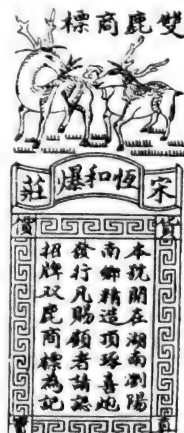 雙鹿商標
宋恆和爆莊
貨真價實
本號開在湖南瀏陽
南鄉精造頂琢喜炮
發行凡賜顧者請認
招牌双鹿商標為記